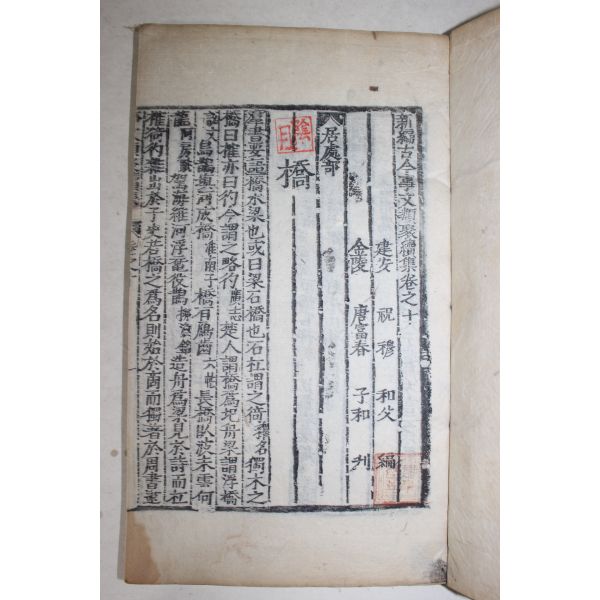 新編古今事文類聚續集卷之十
建安 祝穆 和父 編
金陵 唐富春 子和 刊
居處部
橋
羣書要語橋水梁也或曰梁石橋也石杠謂之徛釋名獨木之
橋曰榷亦曰彴今謂之略彴廣志楚人謂橋為圯舟梁謂浮橋
說文烏鵲填河成橋淮南子橋有鴈齒六帖長橋臥波未雲何
龍阿房賦駕
造舟為梁見於詩而杠
榷徛彴雜出於子史若橋之為名則始於商而獨著於周書